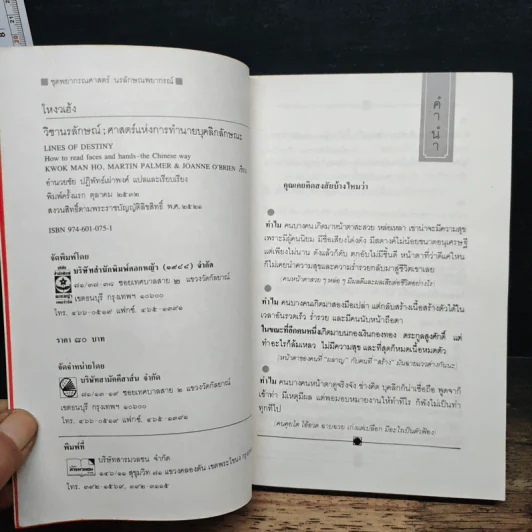 ชุดพยากรณศาสตร์ นรลักษณพยากรณ์
โหงวเฮ้ง
วิชานรลักษณ์ ; ศาสตร์แห่งการทำนายบุคลิกลักษณะ
LINES OF DESTINY
How to read faces and hands-the Chinese way
KWOK MAN HO, MARTIN PALMER & JOANNE O'BRIEN เขียน
อำนวยชัย ปฏิพัทธ์เผ่าพงศ์ แปลและเรียบเรียง
พิมพ์ครั้งแรก ตุลาคม ๒๕๓๒
สงวนลิขสิทธิ์ตามพระราชบัญญัติลิขสิทธิ์ พ.ศ. ๒๕๒๑
ISBN 974-601-075-1
จัดพิมพ์โดย
บริษัทสำนักพิมพ์ดอกหญ้า (๑๙๘๔) จำกัด
ซอยเทศบาลสาย ๒ แขวงวัดกัลยาณ์
เขตธนบุรี กรุงเทพฯ ๑๐๖๐๐
โทร. ๔๖๖-๐๕๑๙ แฟกซ์. ๔๖๕-๑๓๙๑
ราคา ๘๐ บาท
จัดจำหน่ายโดย
บริษัทสามัคคีสาส์น จำกัด
ซอยเทศบาลสาย ๒ แขวงวัดกัลยาณ์
เขตธนบุรี กรุงเทพฯ ๑๐๖๐๐
โทร. ๔๖๖-๐๕๑๙ แฟกซ์. ๔๖๕-๑๓๙๑
พิมพ์ที่
บริษัทสารมวลชน จำกัด
๑๔๘/๑๑ สุขุมวิท ๗๑ แขวงคลองตัน เขตพระโขนง
โทร. ๓๙๒-๑๕๖๙, ๓๙๒-๓๑๑๕
คำนำ
คุณเคยคิดสงสัยบ้างไหมว่า
ทำไม คนบางคน เกิดมาหน้าตาสะสวย หล่อเหลา เขาน่าจะมีความสุข
เพราะมีผู้คนนิยม มีชื่อเสียงโด่งดัง มีสตางค์ไม่น้อยขนาดอยู่เศรษฐี
แต่เพียงไม่นาน ดังแล้วก็ดับ ตกอับไม่มีชิ้นดี หน้าตาที่ว่าดีแค่ไหน
ก็ไม่เคยนำความสุขและความร่ำรวยกลับมาสู่ชีวิตเขาเลย
ทำไม คนบางคนเกิดมาสองมือเปล่า แต่กลับสร้างเนื้อสร้างตัวได้ใน
เวลาอันรวดเร็ว ร่ำรวย และมีคนนับหน้าถือตา
ในขณะที่อีกคนหนึ่งเกิดมาบนกองเงินกองทอง ตระกูลสูงศักดิ์ แต่
ทำอะไรก็ล้มเหลว ไม่มีความสุข และที่สุดก็หมดเนื้อหมดตัว
(หน้าตาของคนที่ "ผลาญ" กับคนที่ "สร้าง" มันอาจแวตต่างกันนะ)
ทำไม คนบางคนหน้าตาดูจริงจัง ช่างคิด บุคลิกก็น่าเชื่อถือ พูดจาก็
เข้าท่า มีเหตุมีผล แต่พอมอบหมายงานให้ทำทีไร ก็พังไม่เป็นท่า
ทุกทีไป